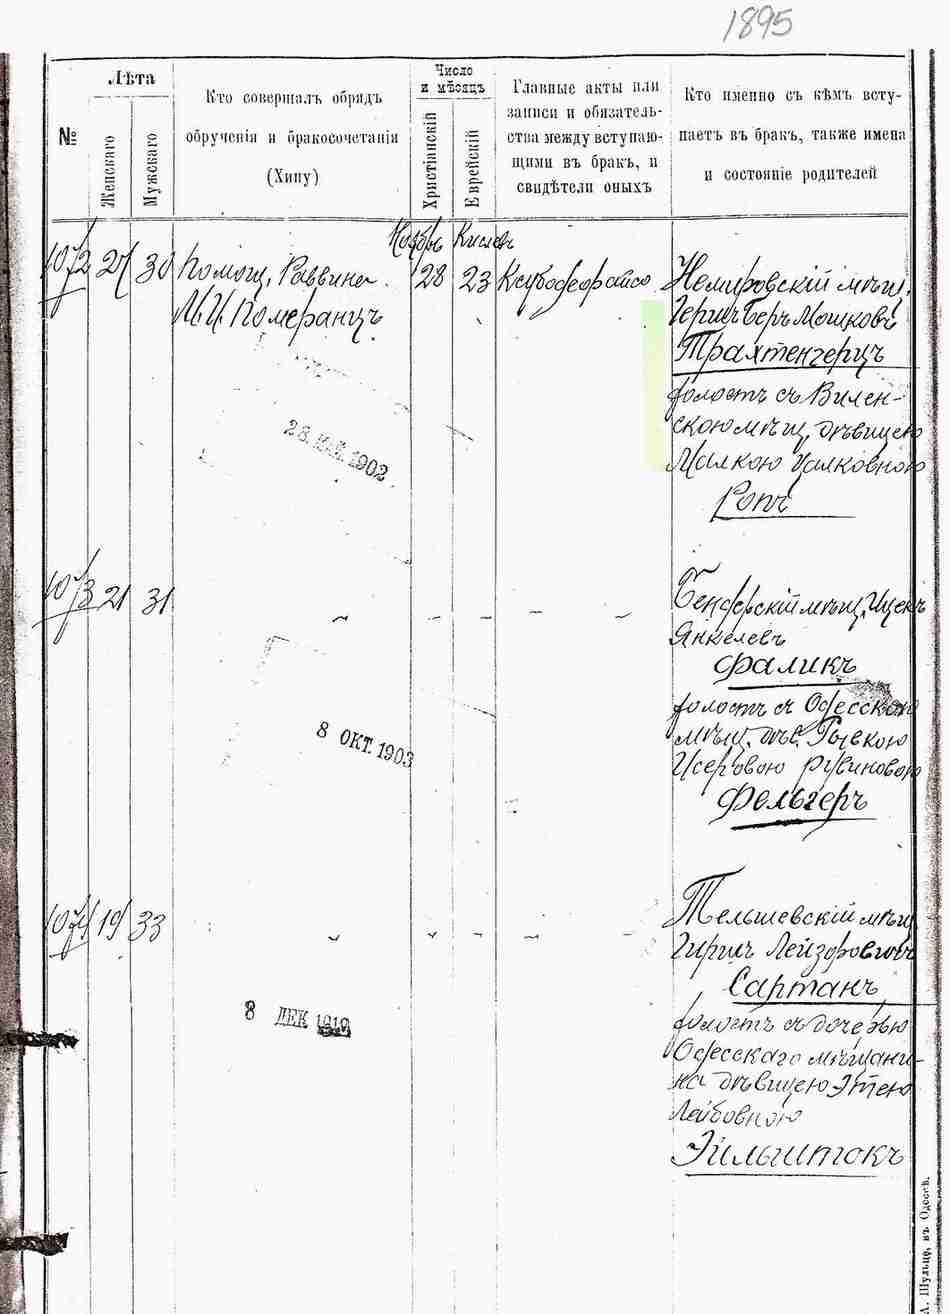 1895
№
Лѣта
Женскаго
Мужскаго
Кто совершалъ обрядъ
обрученія и бракосочетанія
(Хипу)
Число
и мѣсяцъ
Христіанскій
Еврейскій
Главные акты или
записи и обязатель-
ства между вступаю-
щими въ бракъ, и
свидѣтели оныхъ
Кто именно съ кѣмъ всту-
паетъ въ бракъ, также имена
и состояніе родителей
Ноябрь Кислевъ
1072 27 30 Помощ. Раввина 28 23
М.И. Померанцъ
Немировскій мѣщ.
Гершъ Беръ Мошковъ
Трахтенгерцъ
холостъ съ Вилен-
скою мѣщ. дѣвицею
Малкою Цалковною
Ропъ
28. МАЙ. 1902
1073 21 31
Бендерскій мѣщ. Ицекъ
Янкелевъ
Фаликъ
холостъ съ Одесскою
мѣщ. дѣв. Рывкою
Исеръовою Рувиновою
Фельгеръ
8 ОКТ. 1903
1074 19 33
Тельшевскій мѣщ.
Гиршъ Лейзоровичъ
Сартанъ
холостъ съ дочерью
Одесскаго мѣщани-
на дѣвицею Этею
Лейбовною
Эйльштокъ
8 ДЕК 1910
А. Шульце, въ Одессѣ.